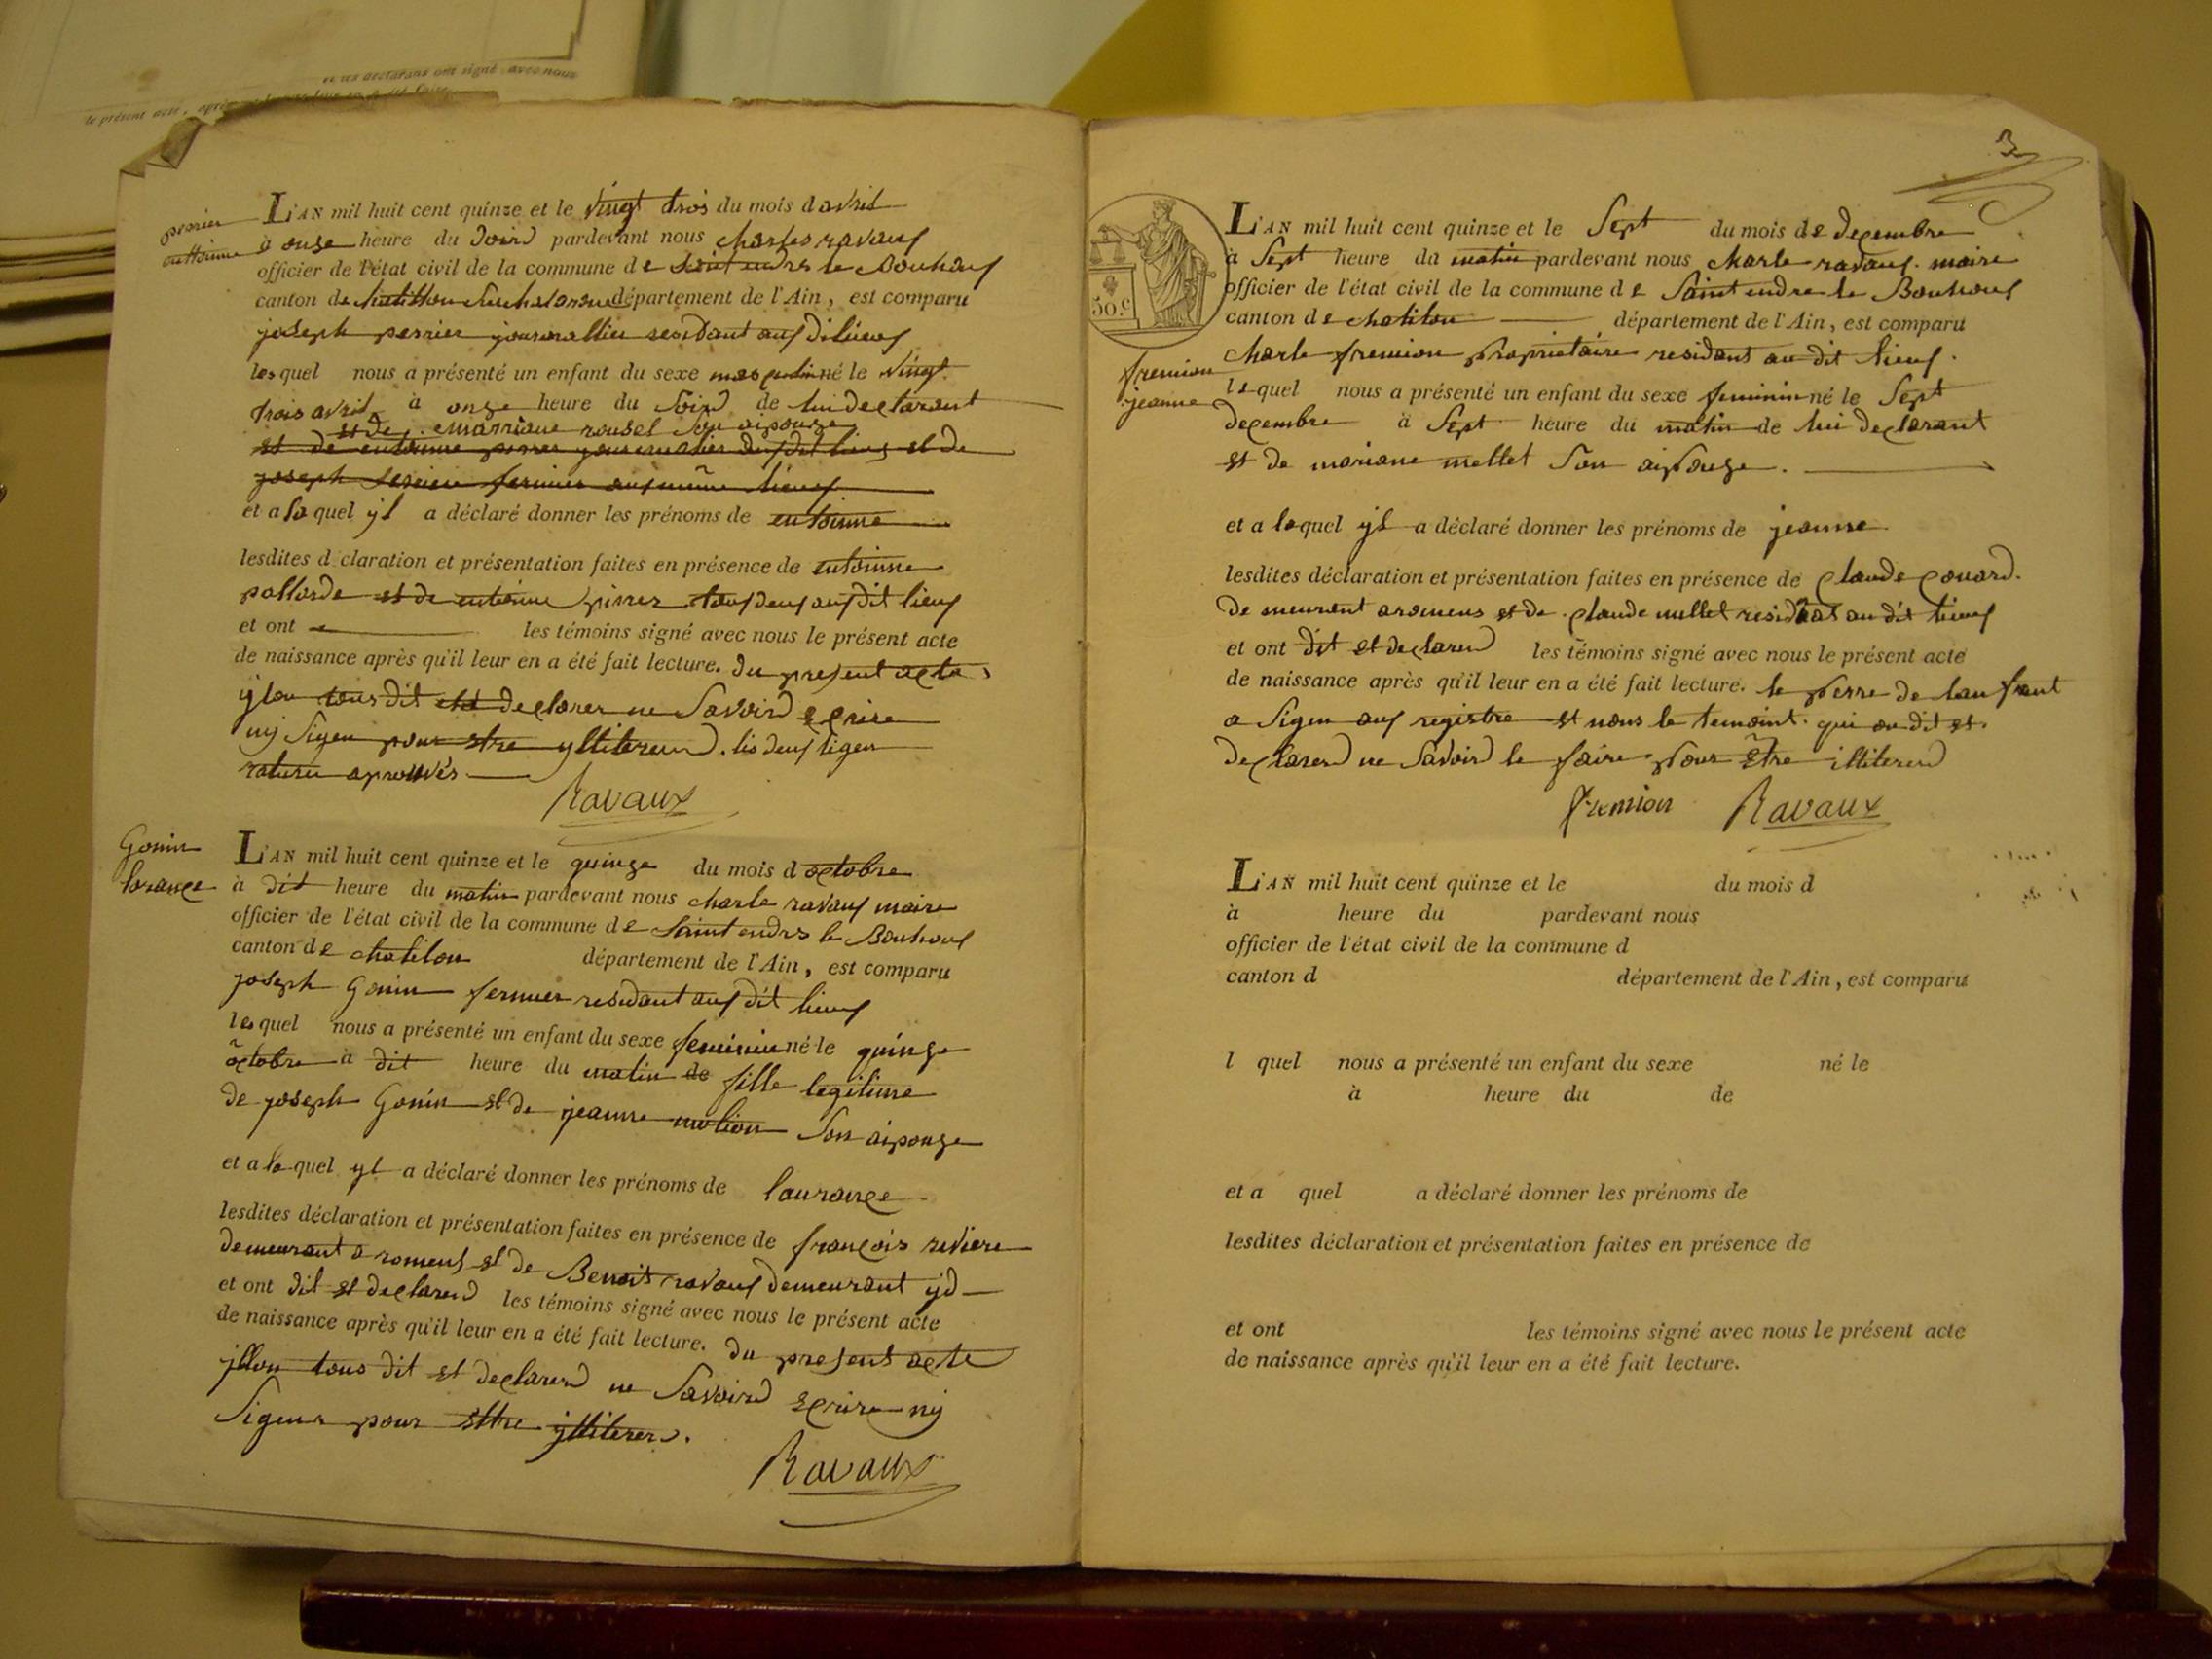 et les déclarans ont signé avec nous
le présent acte, après
perrier
enttoinne
L'AN mil huit cent quinze et le vingt trois du mois d avril
à onze heure du soird pardevant nous charles ravauf
officier de l'état civil de la commune de saint endres le Bouhouf
canton de chatillon sur chalarone département de l'Ain, est comparu
joseph perrier journallier residant auf dilieuf
lesquel nous a présenté un enfant du sexe masqulin né le vingt
trois avril à onze heure du soird de lui declarant
et de marriane rousel son aipouze
et de entoinne perrier journalier auf dit lieuf et de
joseph fermier auf même lieuf
et a la quel yl a déclaré donner les prénoms de entoinne
lesdites d claration et présentation faites en présence de entoinne
pallarde et de entoinne pirrer tous deuf auf dit lieuf
et ont les témoins signé avec nous le présent acte
de naissance après qu'il leur en a été fait lecture. du present acte
ylon tous dit et declarer ne savoird ecrire
nij signer pour etre yllitererd. lis deuf ligen
raturer aprouvés
Ravaux
Gonin
lorance
L'AN mil huit cent quinze et le quinze du mois d octobre
à dit heure du matin pardevant nous charle ravauf maire
officier de l'état civil de la commune de saint endres le Bouhouf
canton de chatilon département de l'Ain, est comparu
joseph Gonin fermier residant auf dit lieuf
lesquel nous a présenté un enfant du sexe feminin né le quinze
octobre à dit heure du matin de fille legitime
de joseph Gonin et de jeanne molion son aipouze
et a la quel yl a déclaré donner les prénoms de laurance
lesdites déclaration et présentation faites en présence de françois riviere
demeurant a romens et de Benoit ravauf demeurant yd
et ont dit et declarerd les témoins signé avec nous le présent acte
de naissance après qu'il leur en a été fait lecture. du present acte
yllon tous dit et declarerd ne savoird ecrire nij
signer pour ettre ylliterer.
Ravaux
3
50.c
fremion
jeanne
L'AN mil huit cent quinze et le sept du mois de decembre
à sept heure du matin pardevant nous charle ravauf. maire
officier de l'état civil de la commune de saint endre le Bouhouf
canton de chatilon département de l'Ain, est comparu
charle fremion propriétaire residant au dit lieuf.
lequel nous a présenté un enfant du sexe feminin né le sept
decembre à sept heure du matin de lui declarant
et de mariane mellet son aipouze.
et a laquel yl a déclaré donner les prénoms de jeanne
lesdites déclaration et présentation faites en présence de claude couard.
demeurent aromens et de claude mellet residant au dit lieuf
et ont dit et declarerd les témoins signé avec nous le présent acte
de naissance après qu'il leur en a été fait lecture. le perre de lanfant
a signe auf registre et nons le temoint. qui on dit et.
declarerd ne savoird le faire pour etre illitererd
fremion Ravaux
L'AN mil huit cent quinze et le du mois d
à heure du pardevant nous
officier de l'état civil de la commune d
canton d département de l'Ain, est comparu
l quel nous a présenté un enfant du sexe né le
à heure du de
et a quel a déclaré donner les prénoms de
lesdites déclaration et présentation faites en présence de
et ont les témoins signé avec nous le présent acte
de naissance après qu'il leur en a été fait lecture.